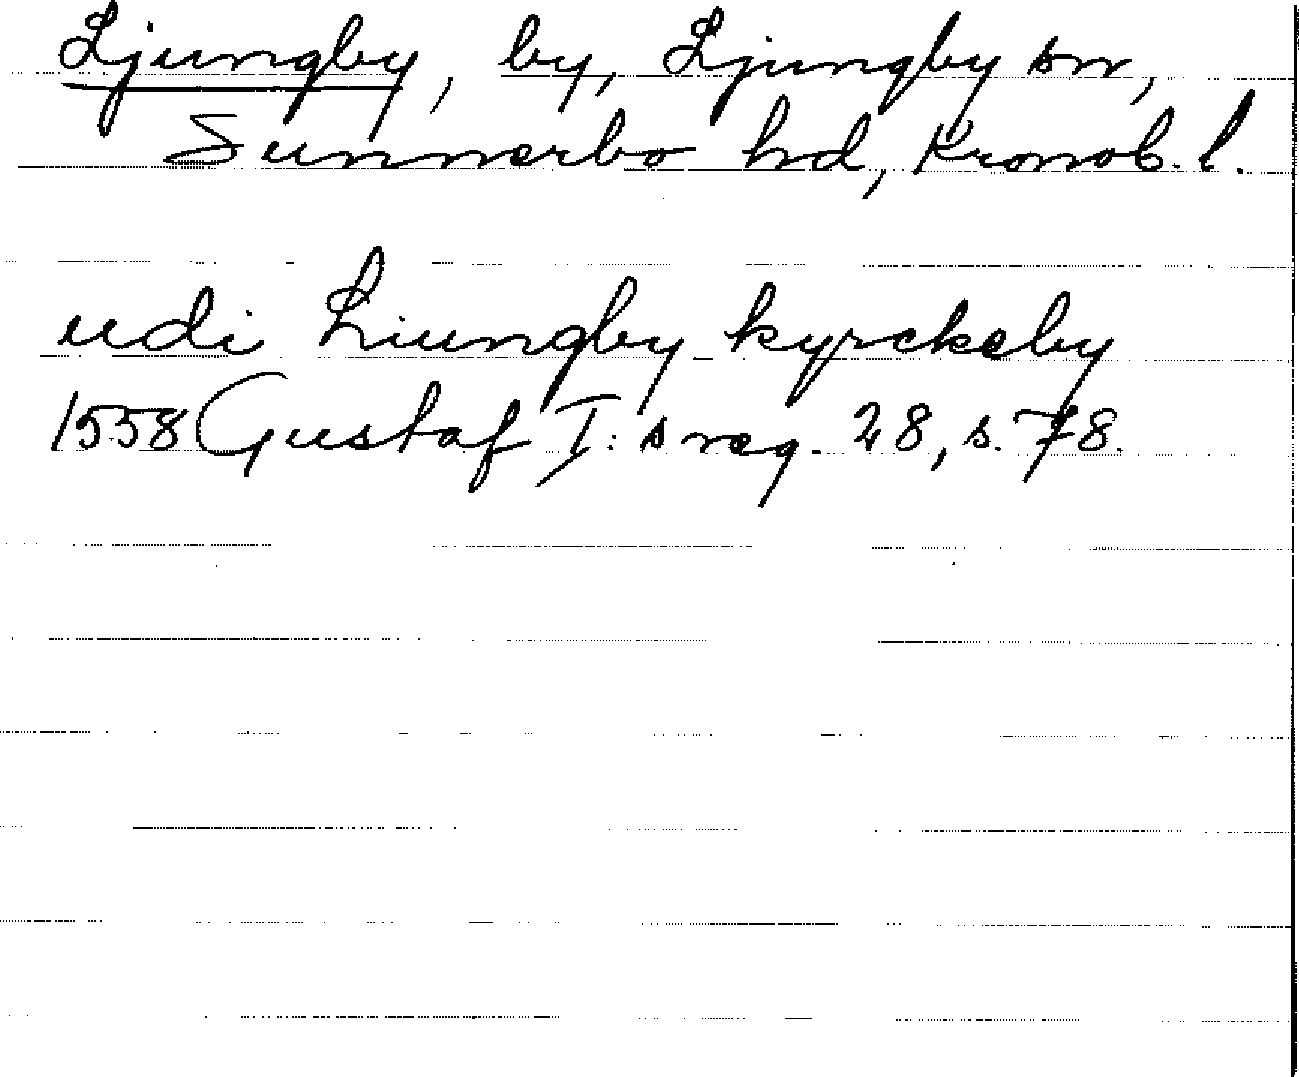 Ljungby, by, Ljungby sn,
Sunnerbo hd, Kronob. l.
udi Liungby kyrckeby
1558 Gustaf I:s reg. 28, s. 78.